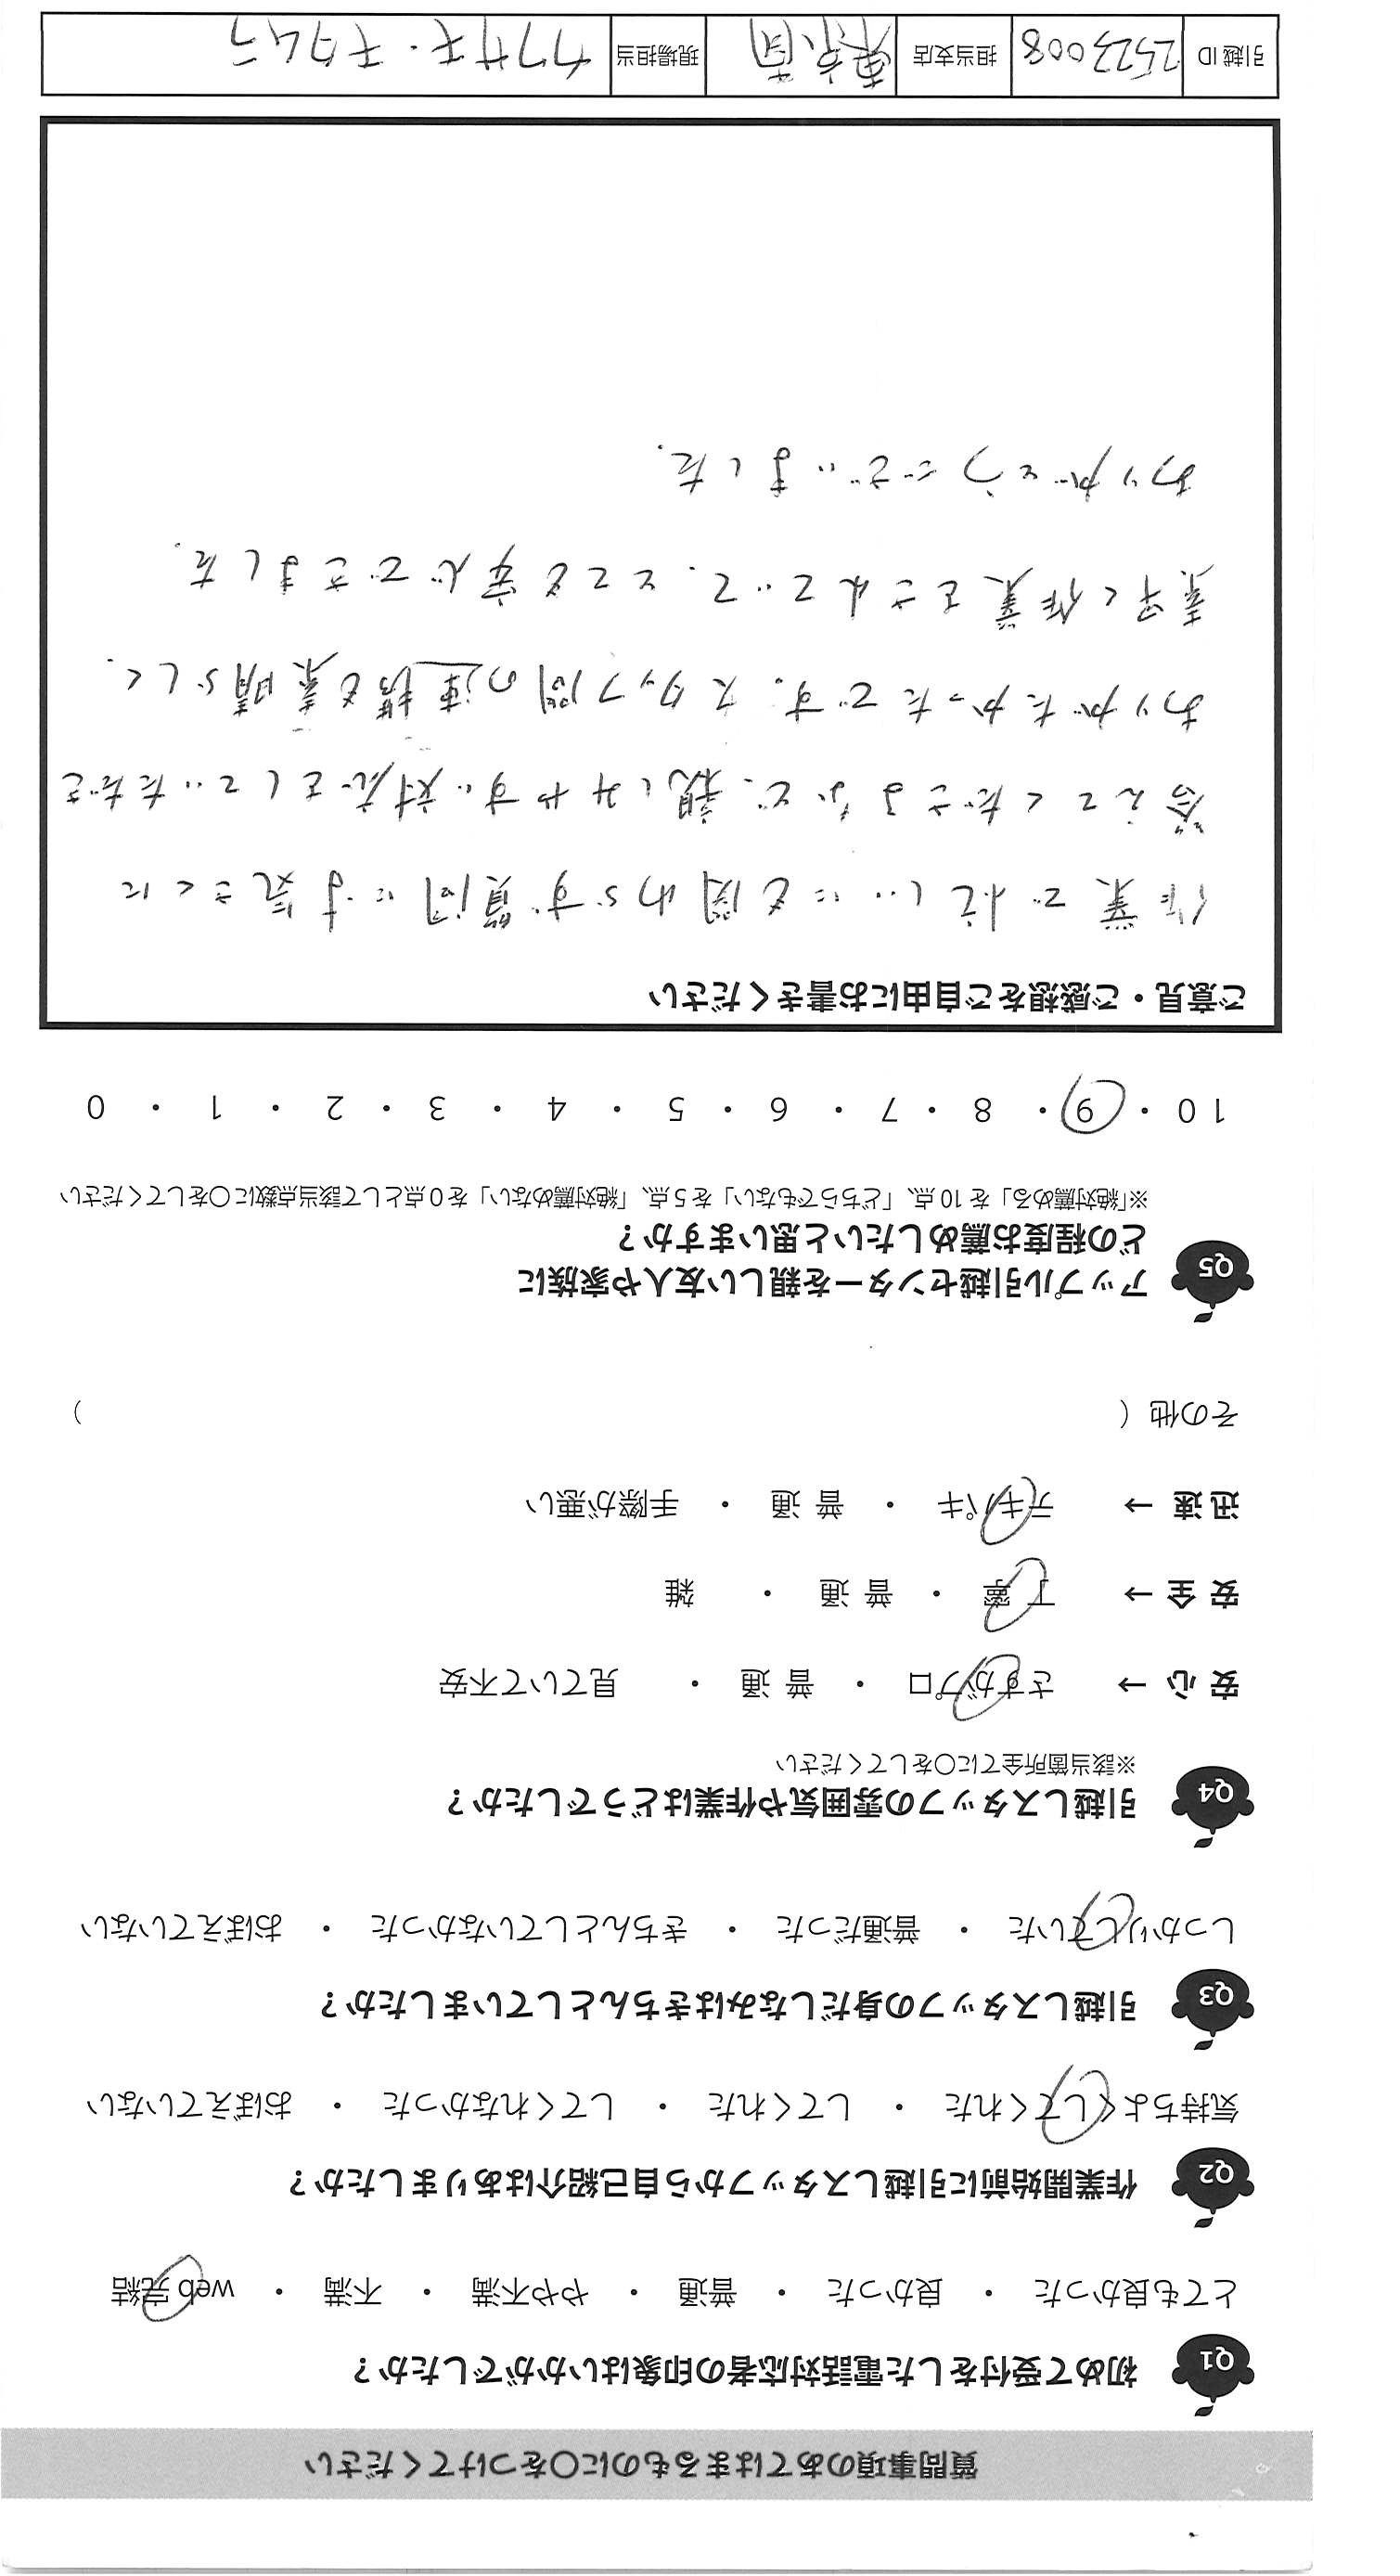 質問事項のあてはまるものに○をつけてください
Q1 初めて受付をした電話対応者の印象はいかがでしたか?
とても良かった ・ 良かった ・ 普通 ・ やや不満 ・ 不満 ・ web 完結
Q2 作業開始前に引越しスタッフから自己紹介はありましたか?
気持ちよくしてくれた ・ してくれた ・ してくれなかった ・ おぼえていない
Q3 引越しスタッフの身だしなみはきちんとしていましたか?
しっかりしていた ・ 普通だった ・ きちんとしていなかった ・ おぼえていない
Q4 引越しスタッフの雰囲気や作業はどうでしたか?
※該当箇所全てに○をしてください
安心 → さすがプロ ・ 普通 ・ 見ていて不安
安全 → 丁寧 ・ 普通 ・ 雑
迅速 → テキパキ ・ 普通 ・ 手際が悪い
その他 ( )
Q5 アップル引越センターを親しい友人や家族に
どの程度お薦めしたいと思いますか?
※「絶対薦める」を 10 点、「どちらでもない」を 5 点、「絶対薦めない」を 0 点として該当点数に○をしてください
10 ・ 9 ・ 8 ・ 7 ・ 6 ・ 5 ・ 4 ・ 3 ・ 2 ・ 1 ・ 0
ご意見・ご感想をご自由にお書きください
作業で忙しいにも関わらず質問にも気さくに
答えてくださるなど、親しみやすい対応をしていただき
ありがたかったです。スタッフ間の連携も素晴らしく、
素早く作業をされていて、とても安心できました。
ありがとうございました。
引越 ID 2523008 担当支店 東京南 現場担当 カワサキ・キタムラ